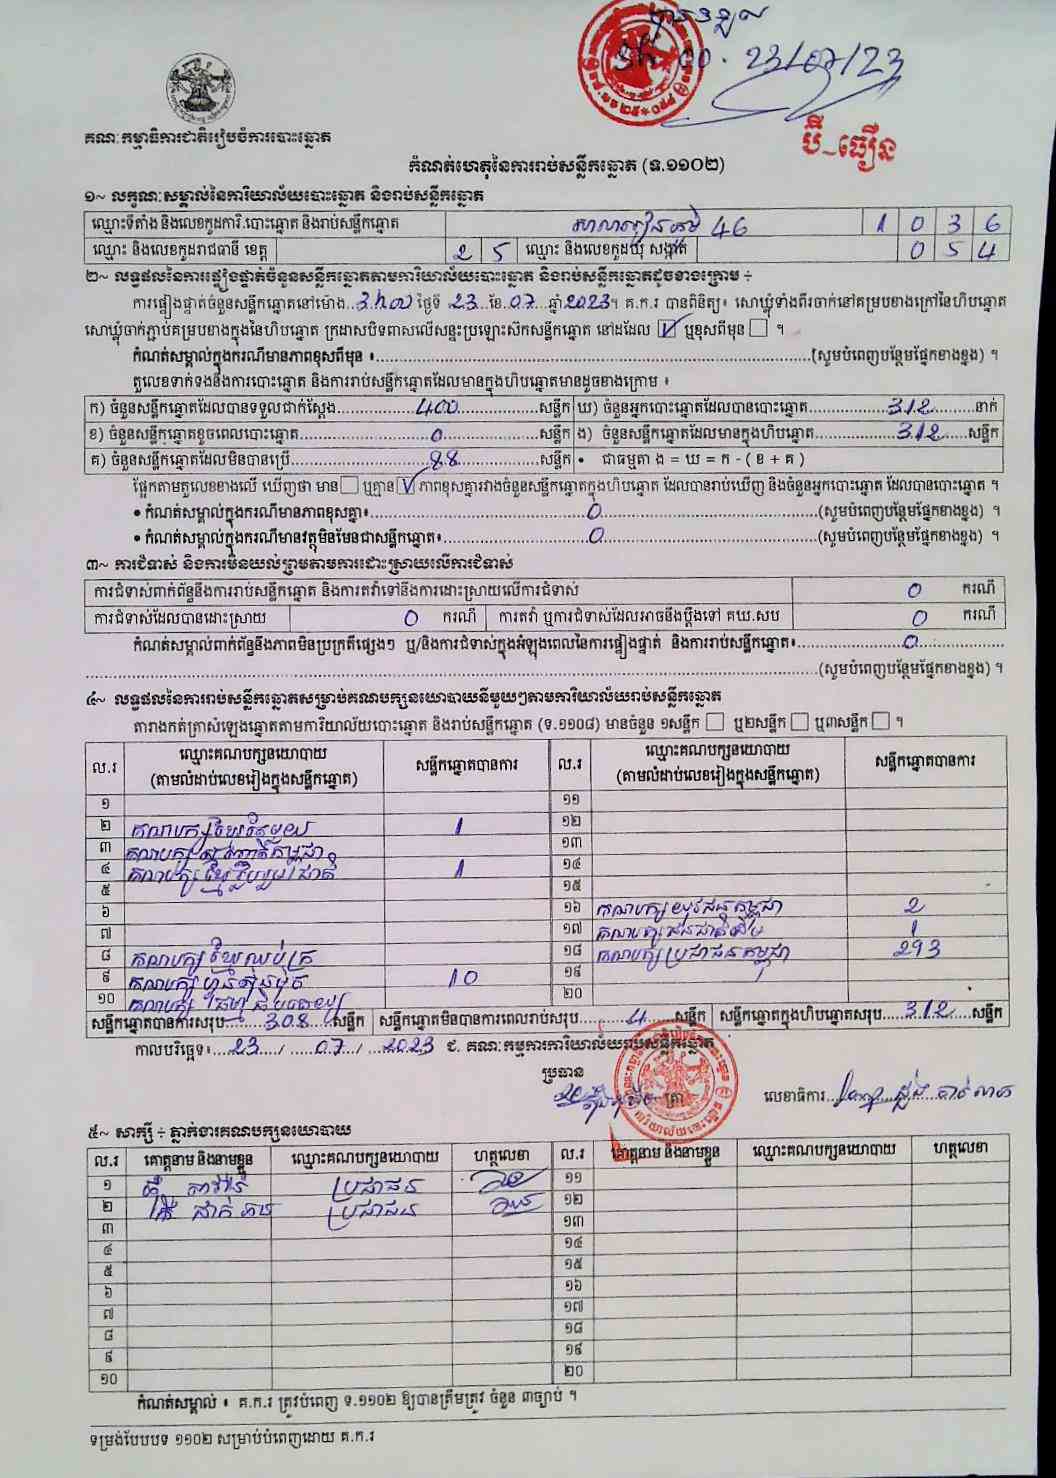 23/07/23
ប៊ី-ធឿន
គណៈកម្មាធិការជាតិរៀបចំការបោះឆ្នោត
កំណត់ហេតុនៃការរាប់សន្លឹកឆ្នោត (ទ.១១០២)
១~ លក្ខណៈសម្គាល់នៃការិយាល័យបោះឆ្នោត និងរាប់សន្លឹកឆ្នោត
ឈ្មោះទីតាំង និងលេខកូដការិ.បោះឆ្នោត និងរាប់សន្លឹកឆ្នោត 46 1 0 3 6
ឈ្មោះ និងលេខកូដរាជធានី ខេត្ត 2 5 ឈ្មោះ និងលេខកូដឃុំ សង្កាត់ 0 5 4
២~ លទ្ធផលនៃការផ្ទៀងផ្ទាត់ចំនួនសន្លឹកឆ្នោតតាមការិយាល័យបោះឆ្នោត និងរាប់សន្លឹកឆ្នោតដូចខាងក្រោម ÷
ការផ្ទៀងផ្ទាត់ចំនួនសន្លឹកឆ្នោតនៅម៉ោង.. ថ្ងៃទី 23 ខែ 07 ឆ្នាំ 2023។ គ.ក.រ បានពិនិត្យ៖ សោឃ្លុំទាំងពីរចាក់នៅគម្របខាងក្រៅនៃហិបឆ្នោត
សោឃ្លុំចាក់ភ្ជាប់គម្របខាងក្នុងនៃហិបឆ្នោត ក្រដាសបិទពាសលើសន្ទះប្រឡោះសឹកសន្លឹកឆ្នោត នៅដដែល ☑ ឬខុសពីមុន ☐ ។
កំណត់សម្គាល់ក្នុងករណីមានភាពខុសពីមុន ៖ (សូមបំពេញបន្ថែមផ្នែកខាងខ្នង) ។
តួលេខទាក់ទងនឹងការបោះឆ្នោត និងការរាប់សន្លឹកឆ្នោតដែលមានក្នុងហិបឆ្នោតមានដូចខាងក្រោម ៖
ក) ចំនួនសន្លឹកឆ្នោតដែលបានទទួលជាក់ស្តែង 400 សន្លឹក ឃ) ចំនួនអ្នកបោះឆ្នោតដែលបានបោះឆ្នោត 312 នាក់
ខ) ចំនួនសន្លឹកឆ្នោតខូចពេលបោះឆ្នោត 0 សន្លឹក ង) ចំនួនសន្លឹកឆ្នោតដែលមានក្នុងហិបឆ្នោត 312 សន្លឹក
គ) ចំនួនសន្លឹកឆ្នោតដែលមិនបានប្រើ 88 សន្លឹក • ជាធម្មតា ង = ឃ = ក - ( ខ + គ )
ផ្អែកតាមតួលេខខាងលើ ឃើញថា មាន ☐ ឬគ្មាន ☑ ភាពខុសគ្នារវាងចំនួនសន្លឹកឆ្នោតក្នុងហិបឆ្នោត ដែលបានរាប់ឃើញ និងចំនួនអ្នកបោះឆ្នោត ដែលបានបោះឆ្នោត ។
• កំណត់សម្គាល់ក្នុងករណីមានភាពខុសគ្នា៖ 0 (សូមបំពេញបន្ថែមផ្នែកខាងខ្នង) ។
• កំណត់សម្គាល់ក្នុងករណីមានវត្ថុមិនមែនជាសន្លឹកឆ្នោត៖ 0 (សូមបំពេញបន្ថែមផ្នែកខាងខ្នង) ។
៣~ ការជំទាស់ និងការមិនយល់ព្រមតាមការដោះស្រាយលើការជំទាស់
ការជំទាស់ពាក់ព័ន្ធនឹងការរាប់សន្លឹកឆ្នោត និងការតវ៉ាទៅនឹងការដោះស្រាយលើការជំទាស់ 0 ករណី
ការជំទាស់ដែលបានដោះស្រាយ 0 ករណី ការតវ៉ា ឬការជំទាស់ដែលអាចនឹងប្តឹងទៅ គឃ.សប 0 ករណី
កំណត់សម្គាល់ពាក់ព័ន្ធនឹងភាពមិនប្រក្រតីផ្សេងៗ ឬ/និងការជំទាស់ក្នុងអំឡុងពេលនៃការផ្ទៀងផ្ទាត់ និងការរាប់សន្លឹកឆ្នោត៖ 0
(សូមបំពេញបន្ថែមផ្នែកខាងខ្នង) ។
៤~ លទ្ធផលនៃការរាប់សន្លឹកឆ្នោតសម្រាប់គណបក្សនយោបាយនីមួយៗតាមការិយាល័យរាប់សន្លឹកឆ្នោត
តារាងកត់ត្រាសំឡេងឆ្នោតតាមការិយាល័យបោះឆ្នោត និងរាប់សន្លឹកឆ្នោត (ទ.១១០៨) មានចំនួន ១សន្លឹក ☐ ឬ២សន្លឹក ☐ ឬ៣សន្លឹក ☐ ។
ល.រ ឈ្មោះគណបក្សនយោបាយ (តាមលំដាប់លេខរៀងក្នុងសន្លឹកឆ្នោត) សន្លឹកឆ្នោតបានការ ល.រ ឈ្មោះគណបក្សនយោបាយ (តាមលំដាប់លេខរៀងក្នុងសន្លឹកឆ្នោត) សន្លឹកឆ្នោតបានការ
១ ១១
២ គណបក្សខ្មែរតែមួយ 1 ១២
៣ គណបក្ស ១៣
៤ គណបក្ស 1 ១៤
៥ ១៥
៦ ១៦ គណបក្ស 2
៧ ១៧ គណបក្ស 1
៨ គណបក្សខ្មែរឈប់ក្រ ១៨ គណបក្សប្រជាជនកម្ពុជា 293
៩ គណបក្សហ៊្វុនស៊ិនប៉ិច 10 ១៩
១០ គណបក្ស ២០
សន្លឹកឆ្នោតបានការសរុប 308 សន្លឹក សន្លឹកឆ្នោតមិនបានការពេលរាប់សរុប 4 សន្លឹក សន្លឹកឆ្នោតក្នុងហិបឆ្នោតសរុប 312 សន្លឹក
កាលបរិច្ឆេទ៖ 23 / 07 / 2023 ជ. គណៈកម្មការការិយាល័យរាប់សន្លឹកឆ្នោត
ប្រធាន
លេខាធិការ
៥~ សាក្សី ÷ ភ្នាក់ងារគណបក្សនយោបាយ
ល.រ គោត្តនាម និងនាមខ្លួន ឈ្មោះគណបក្សនយោបាយ ហត្ថលេខា ល.រ គោត្តនាម និងនាមខ្លួន ឈ្មោះគណបក្សនយោបាយ ហត្ថលេខា
១ ប្រជាជន ១១
២ ប្រជាជន ១២
៣ ១៣
៤ ១៤
៥ ១៥
៦ ១៦
៧ ១៧
៨ ១៨
៩ ១៩
១០ ២០
កំណត់សម្គាល់ ៖ គ.ក.រ ត្រូវបំពេញ ទ.១១០២ ឱ្យបានត្រឹមត្រូវ ចំនួន ៣ច្បាប់ ។
ទម្រង់បែបបទ ១១០២ សម្រាប់បំពេញដោយ គ.ក.រ